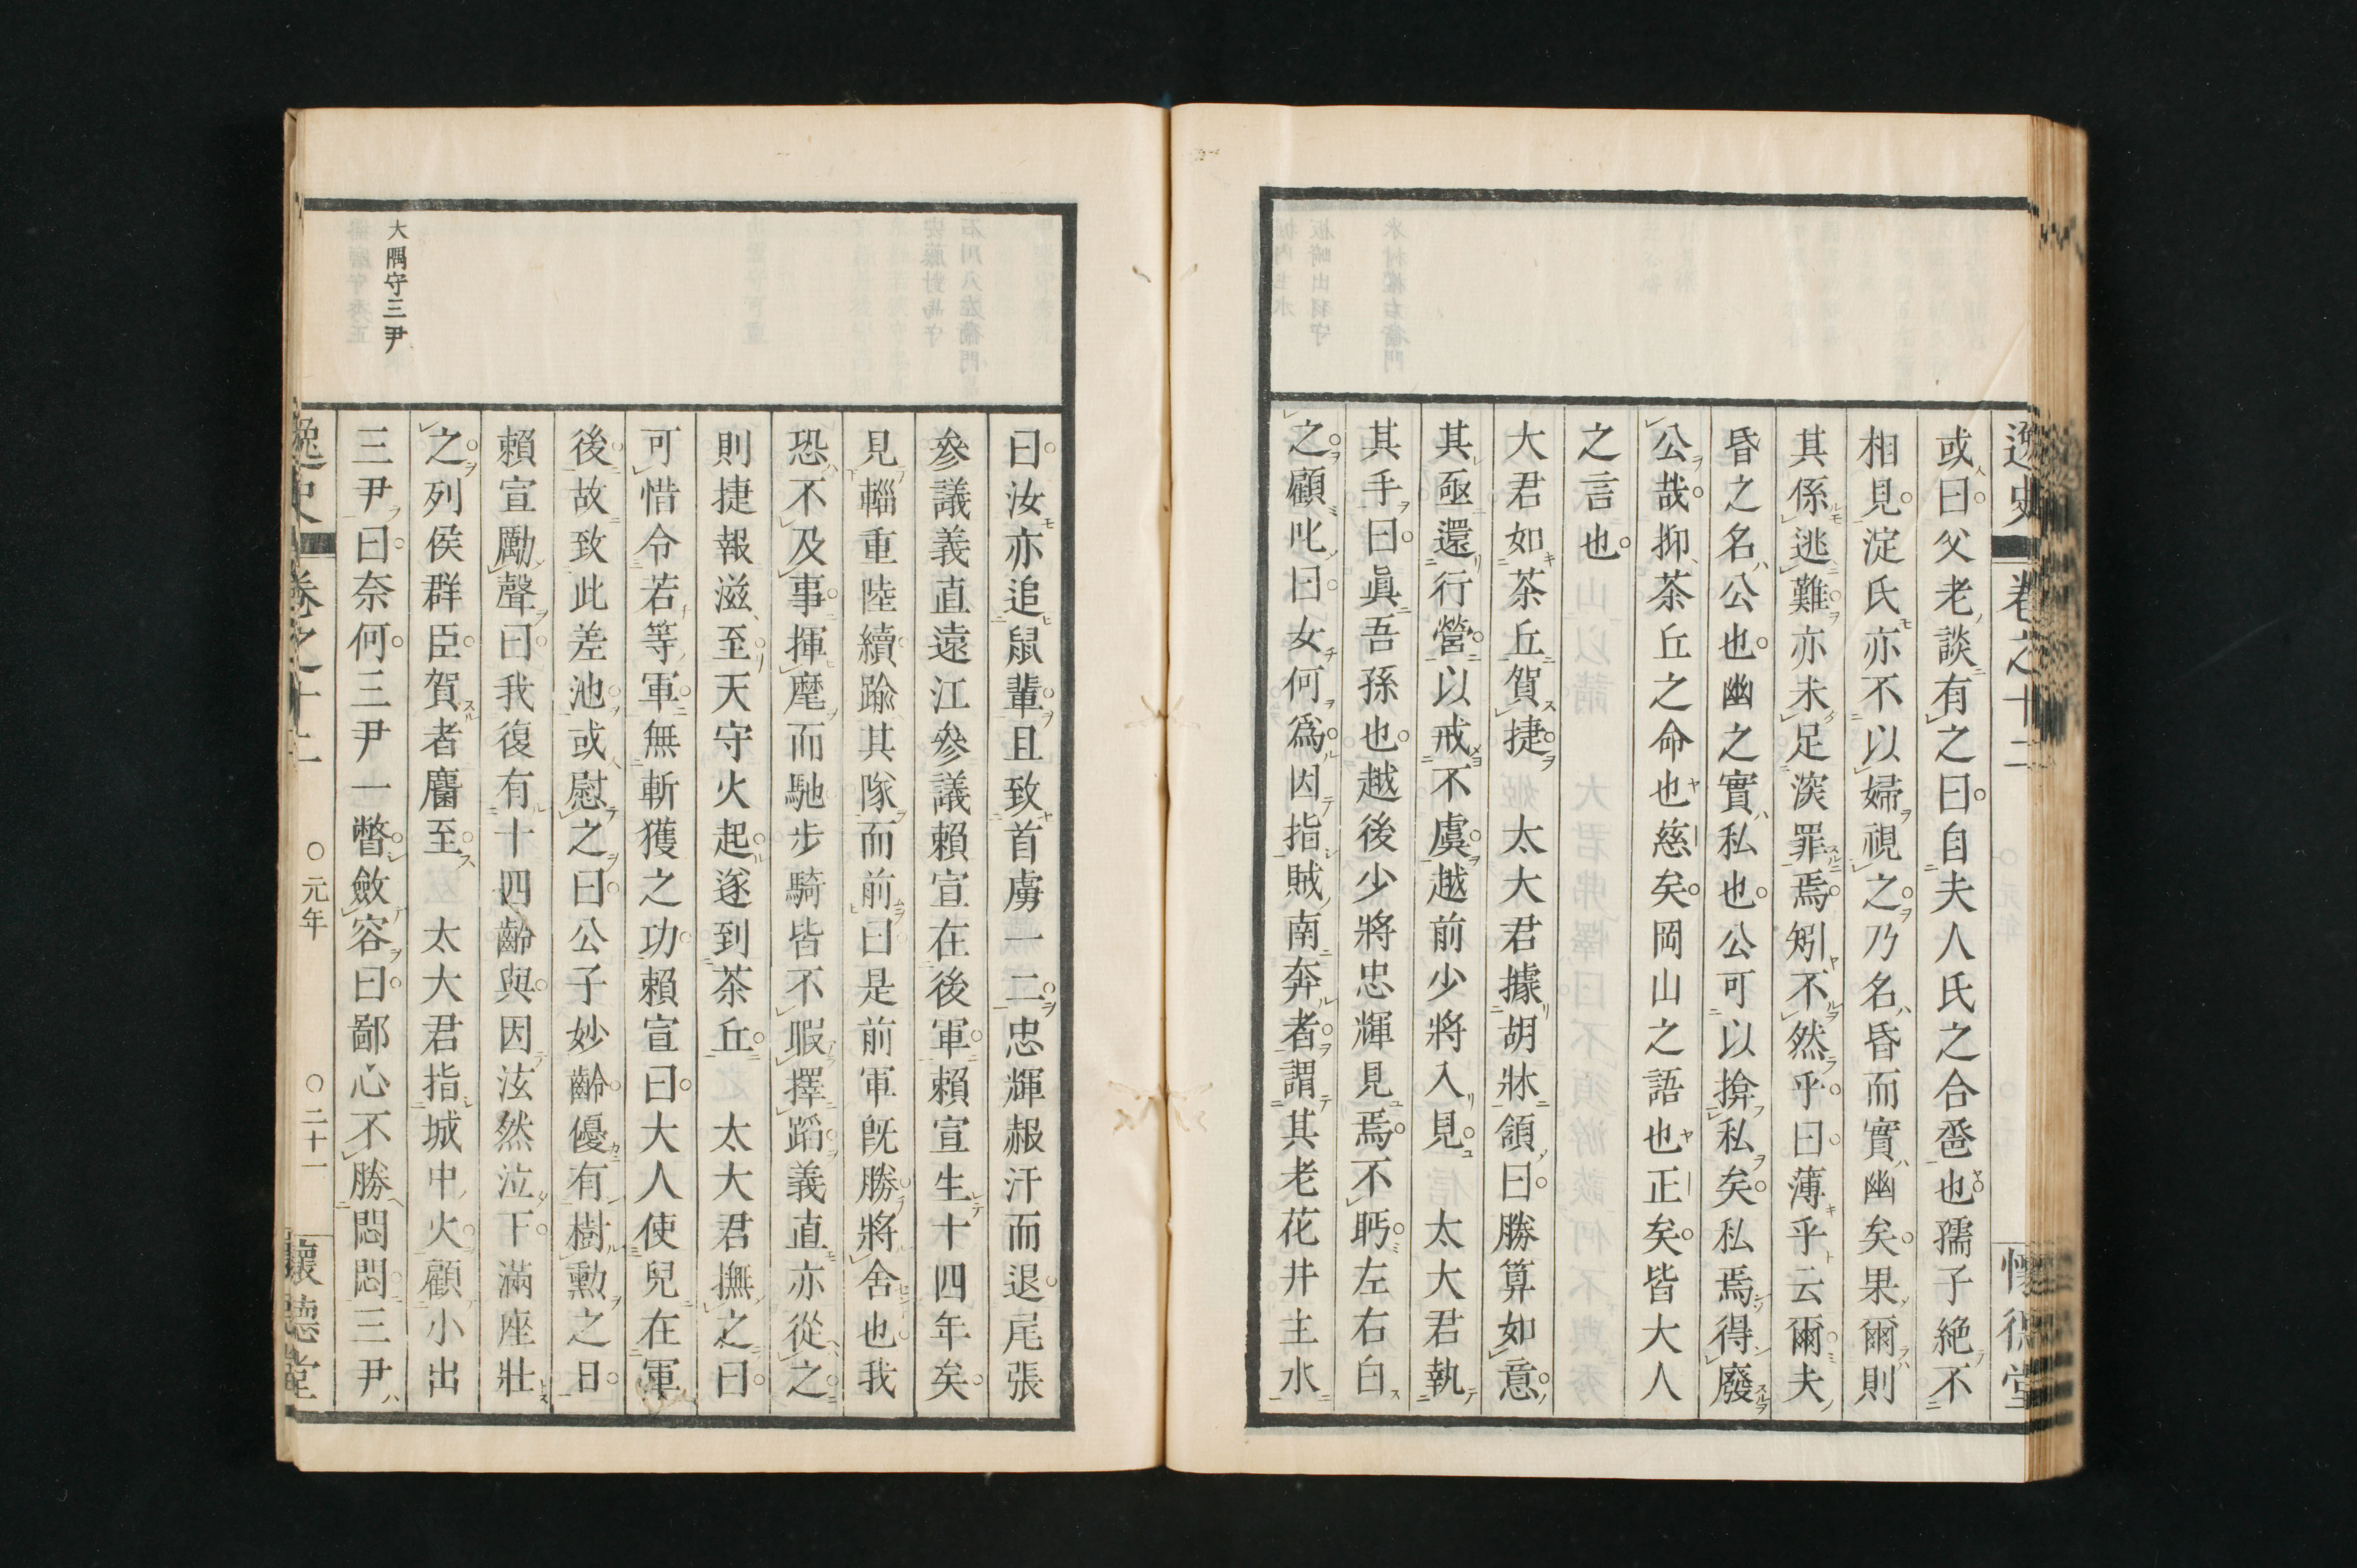 逸史 卷之十二 懷德堂
或曰父老談有之曰自夫人氏之合巹也孺子絶不
相見淀氏亦不以婦視之乃名昏而實幽矣果爾則
其係逃難亦未足深罪焉矧不然乎曰薄乎云爾夫
昏之名公也幽之實私也公可以揜私矣私焉得廢
公哉抑茶丘之命也慈矣岡山之語也正矣皆大人
之言也
大君如茶丘賀捷 太大君據胡牀頷曰勝算如意
其亟還行營以戒不虞越前少將入見 太大君執
其手曰眞吾孫也越後少將忠輝見焉不眄左右白
之顧叱曰女何爲因指賊南奔者謂其老花井主水
曰汝亦追鼠輩且致首虜一二忠輝赧汗而退尾張
參議義直遠江參議賴宣在後軍賴宣生十四年矣
見輜重陸續踰其隊而前曰是前軍既勝將舍也我
恐不及事揮麾而馳步騎皆不暇擇蹈義直亦從之
則捷報滋至天守火起遂到茶丘 太大君撫之曰
可惜令若等軍無斬獲之功賴宣曰大人使兒在軍
後故致此差池或慰之曰公子妙齡優有樹勳之日
賴宣勵聲曰我復有十四齡與因泫然泣下滿座壯
之列侯群臣賀者麕至 太大君指城中火顧小出
三尹曰奈何三尹一瞥斂容曰鄙心不勝悶悶三尹
大隅守三尹
逸史 卷之十二 ○元年 ○二十一 懷德堂